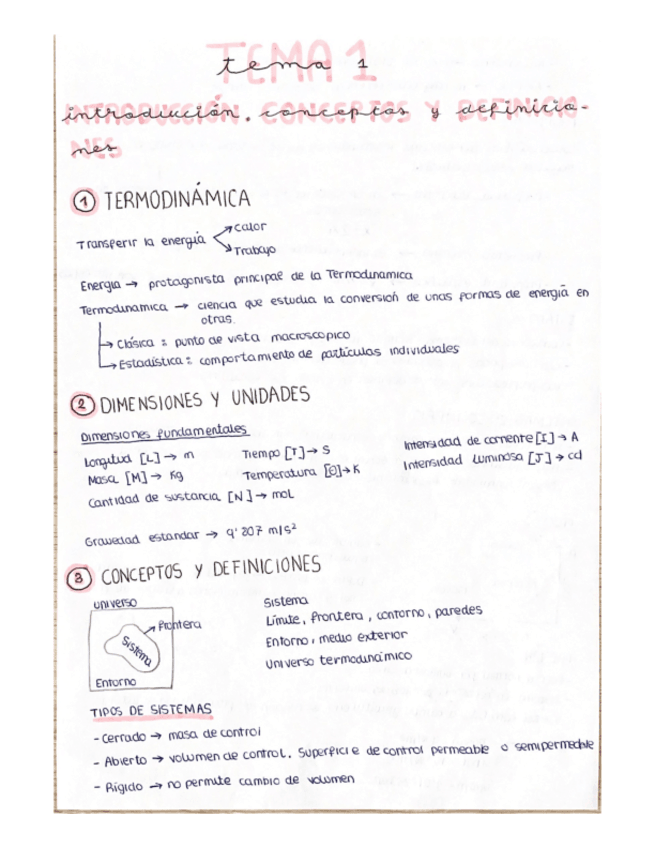 TEMA 1
tema 1
introducción. conceptos y definicio-
nes
① TERMODINÁMICA
Transferir la energía → Calor
→ Trabajo
Energía → protagonista principal de la Termodinamica
Termodinamica → ciencia que estudia la conversión de unas formas de energía en
otras.
→ Clásica = punto de vista macroscopico
→ Estadística = comportamiento de partículas individuales
② DIMENSIONES Y UNIDADES
Dimensiones fundamentales
Longitud [L] → m Tiempo [T] → s Intensidad de corriente [I] → A
Masa [M] → Kg Temperatura [Θ] → K Intensidad Luminosa [J] → cd
Cantidad de sustancia [N] → mol
Gravedad estandar → 9'807 m/s²
③ CONCEPTOS Y DEFINICIONES
universo
Frontera
Sistema
Entorno
Sistema
Límite, frontera, contorno, paredes
Entorno, medio exterior
Universo termodinámico
TIPOS DE SISTEMAS
- Cerrado → masa de control
- Abierto → volumen de control. Superficie de control permeable o semipermeable
- Rígido → no permite cambio de volumen